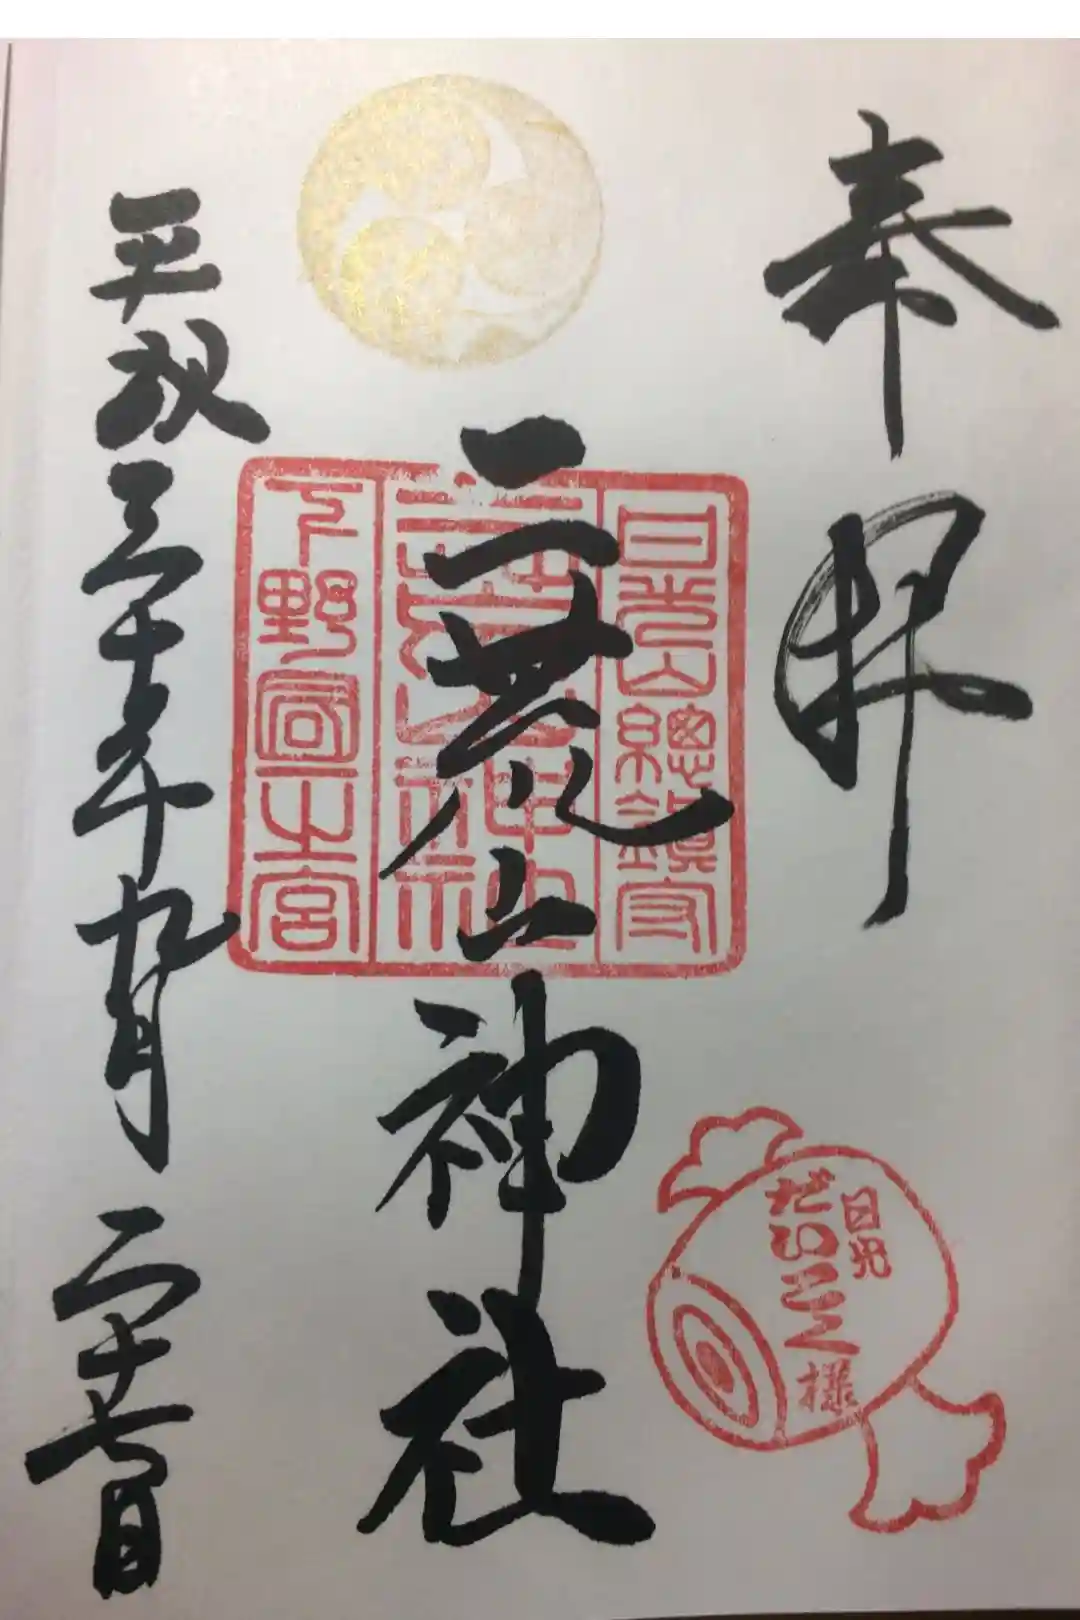 奉拝
日光山總鎮守
二荒山神社
下野國一之宮
平成三十年九月二十六日
日光
だいこく様